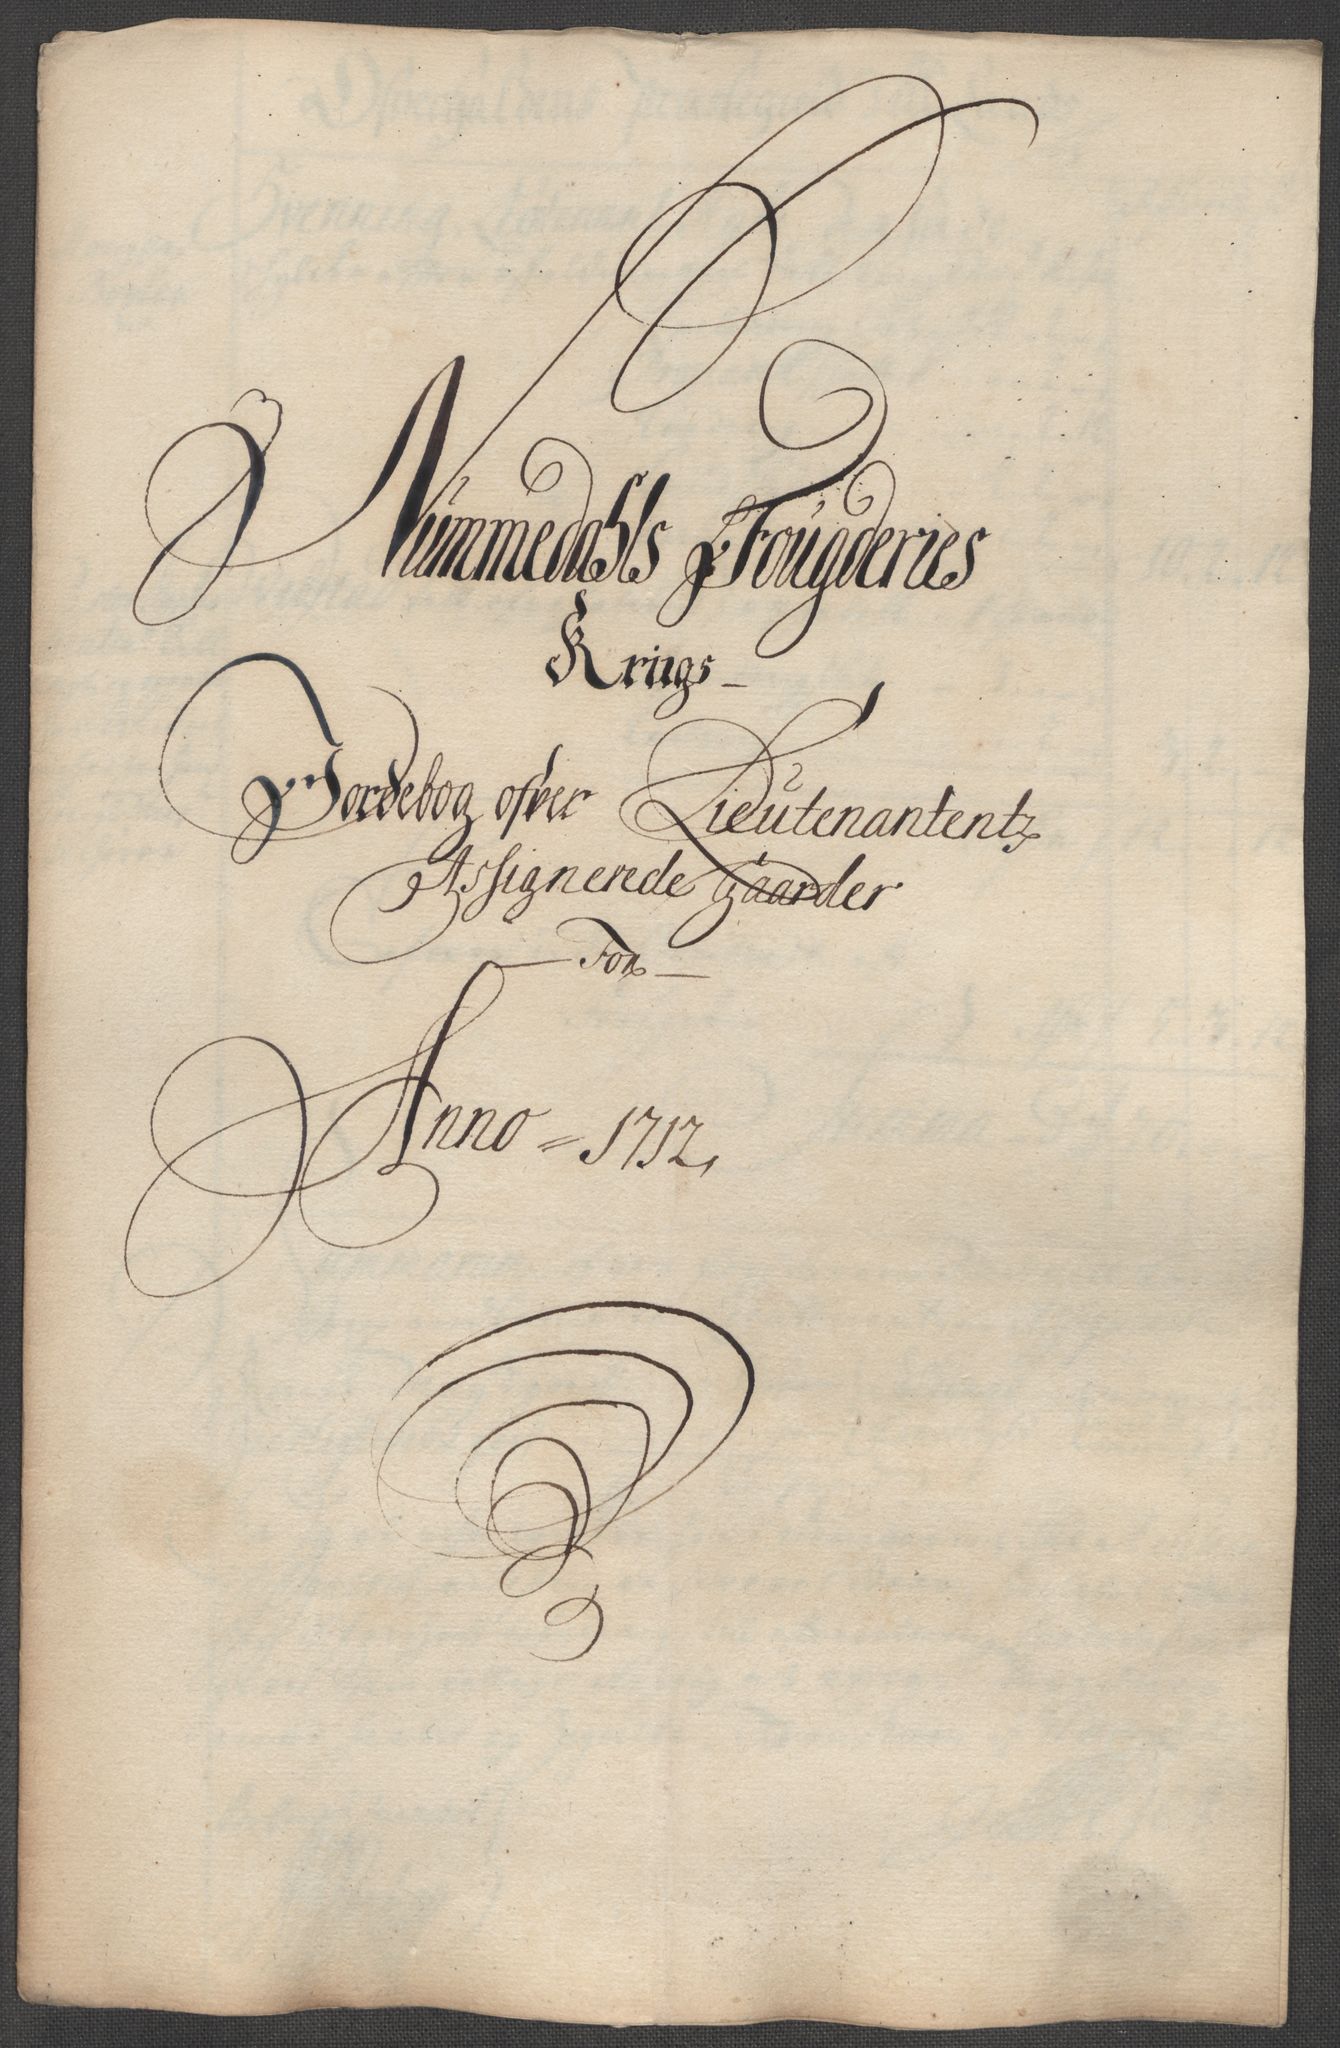 Nummedahls Fougderies
Krigs-
Jordebog ofver Lieutenantentz
Assignerede gaarder
— For —
Anno = 1712,